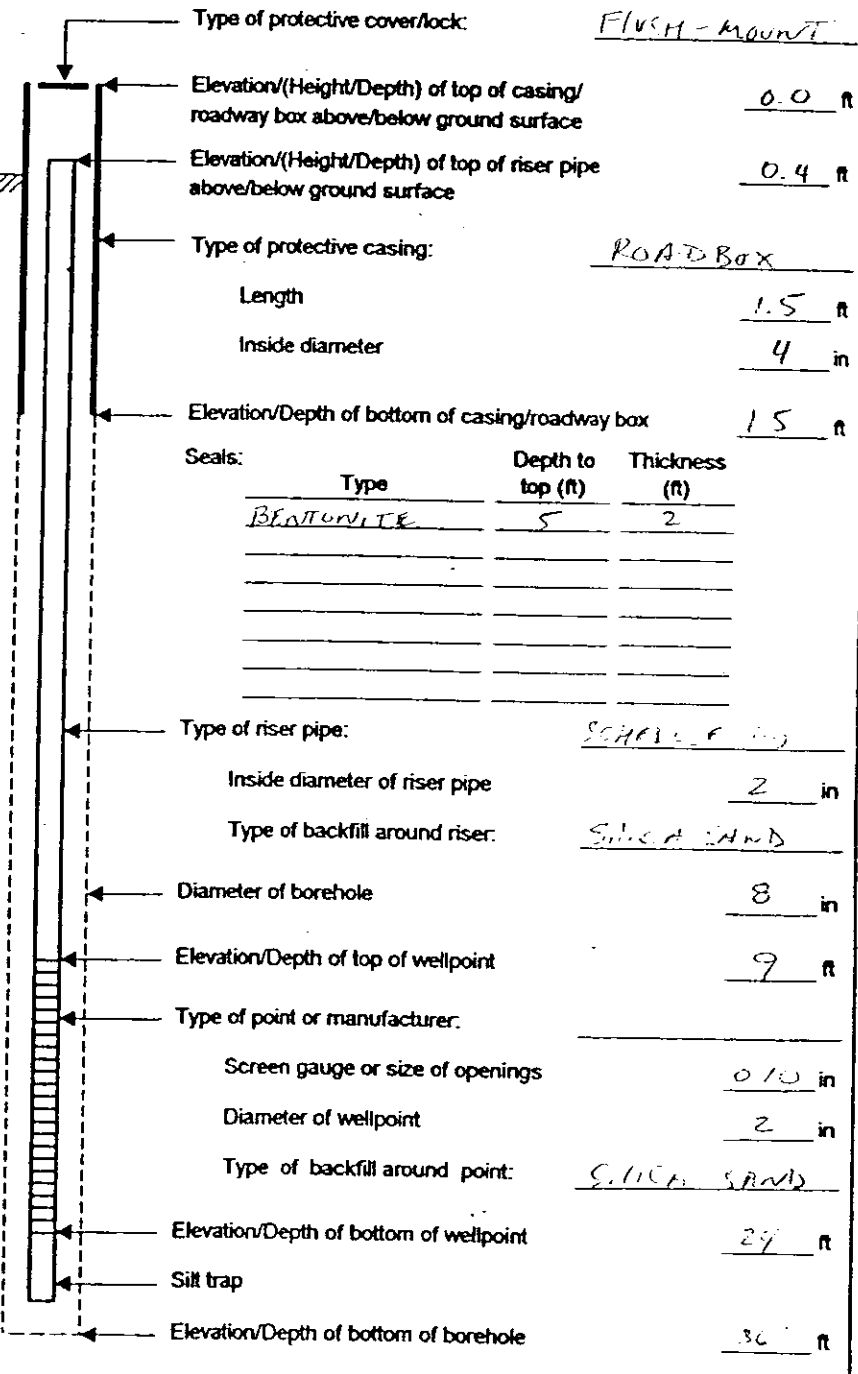 Type of protective cover/lock: FLUSH-MOUNT
Elevation/(Height/Depth) of top of casing/
roadway box above/below ground surface 0.0 ft
Elevation/(Height/Depth) of top of riser pipe
above/below ground surface 0.4 ft
Type of protective casing: ROADBOX
Length 1.5 ft
Inside diameter 4 in
Elevation/Depth of bottom of casing/roadway box 1 5 ft
Seals:
Type Depth to top (ft) Thickness (ft)
BENTONITE 5 2
Type of riser pipe:
Inside diameter of riser pipe 2 in
Type of backfill around riser: SILICA SAND
Diameter of borehole 8 in
Elevation/Depth of top of wellpoint 9 ft
Type of point or manufacturer:
Screen gauge or size of openings 010 in
Diameter of wellpoint 2 in
Type of backfill around point: SILICA SAND
Elevation/Depth of bottom of wellpoint ft
Silt trap
Elevation/Depth of bottom of borehole ft